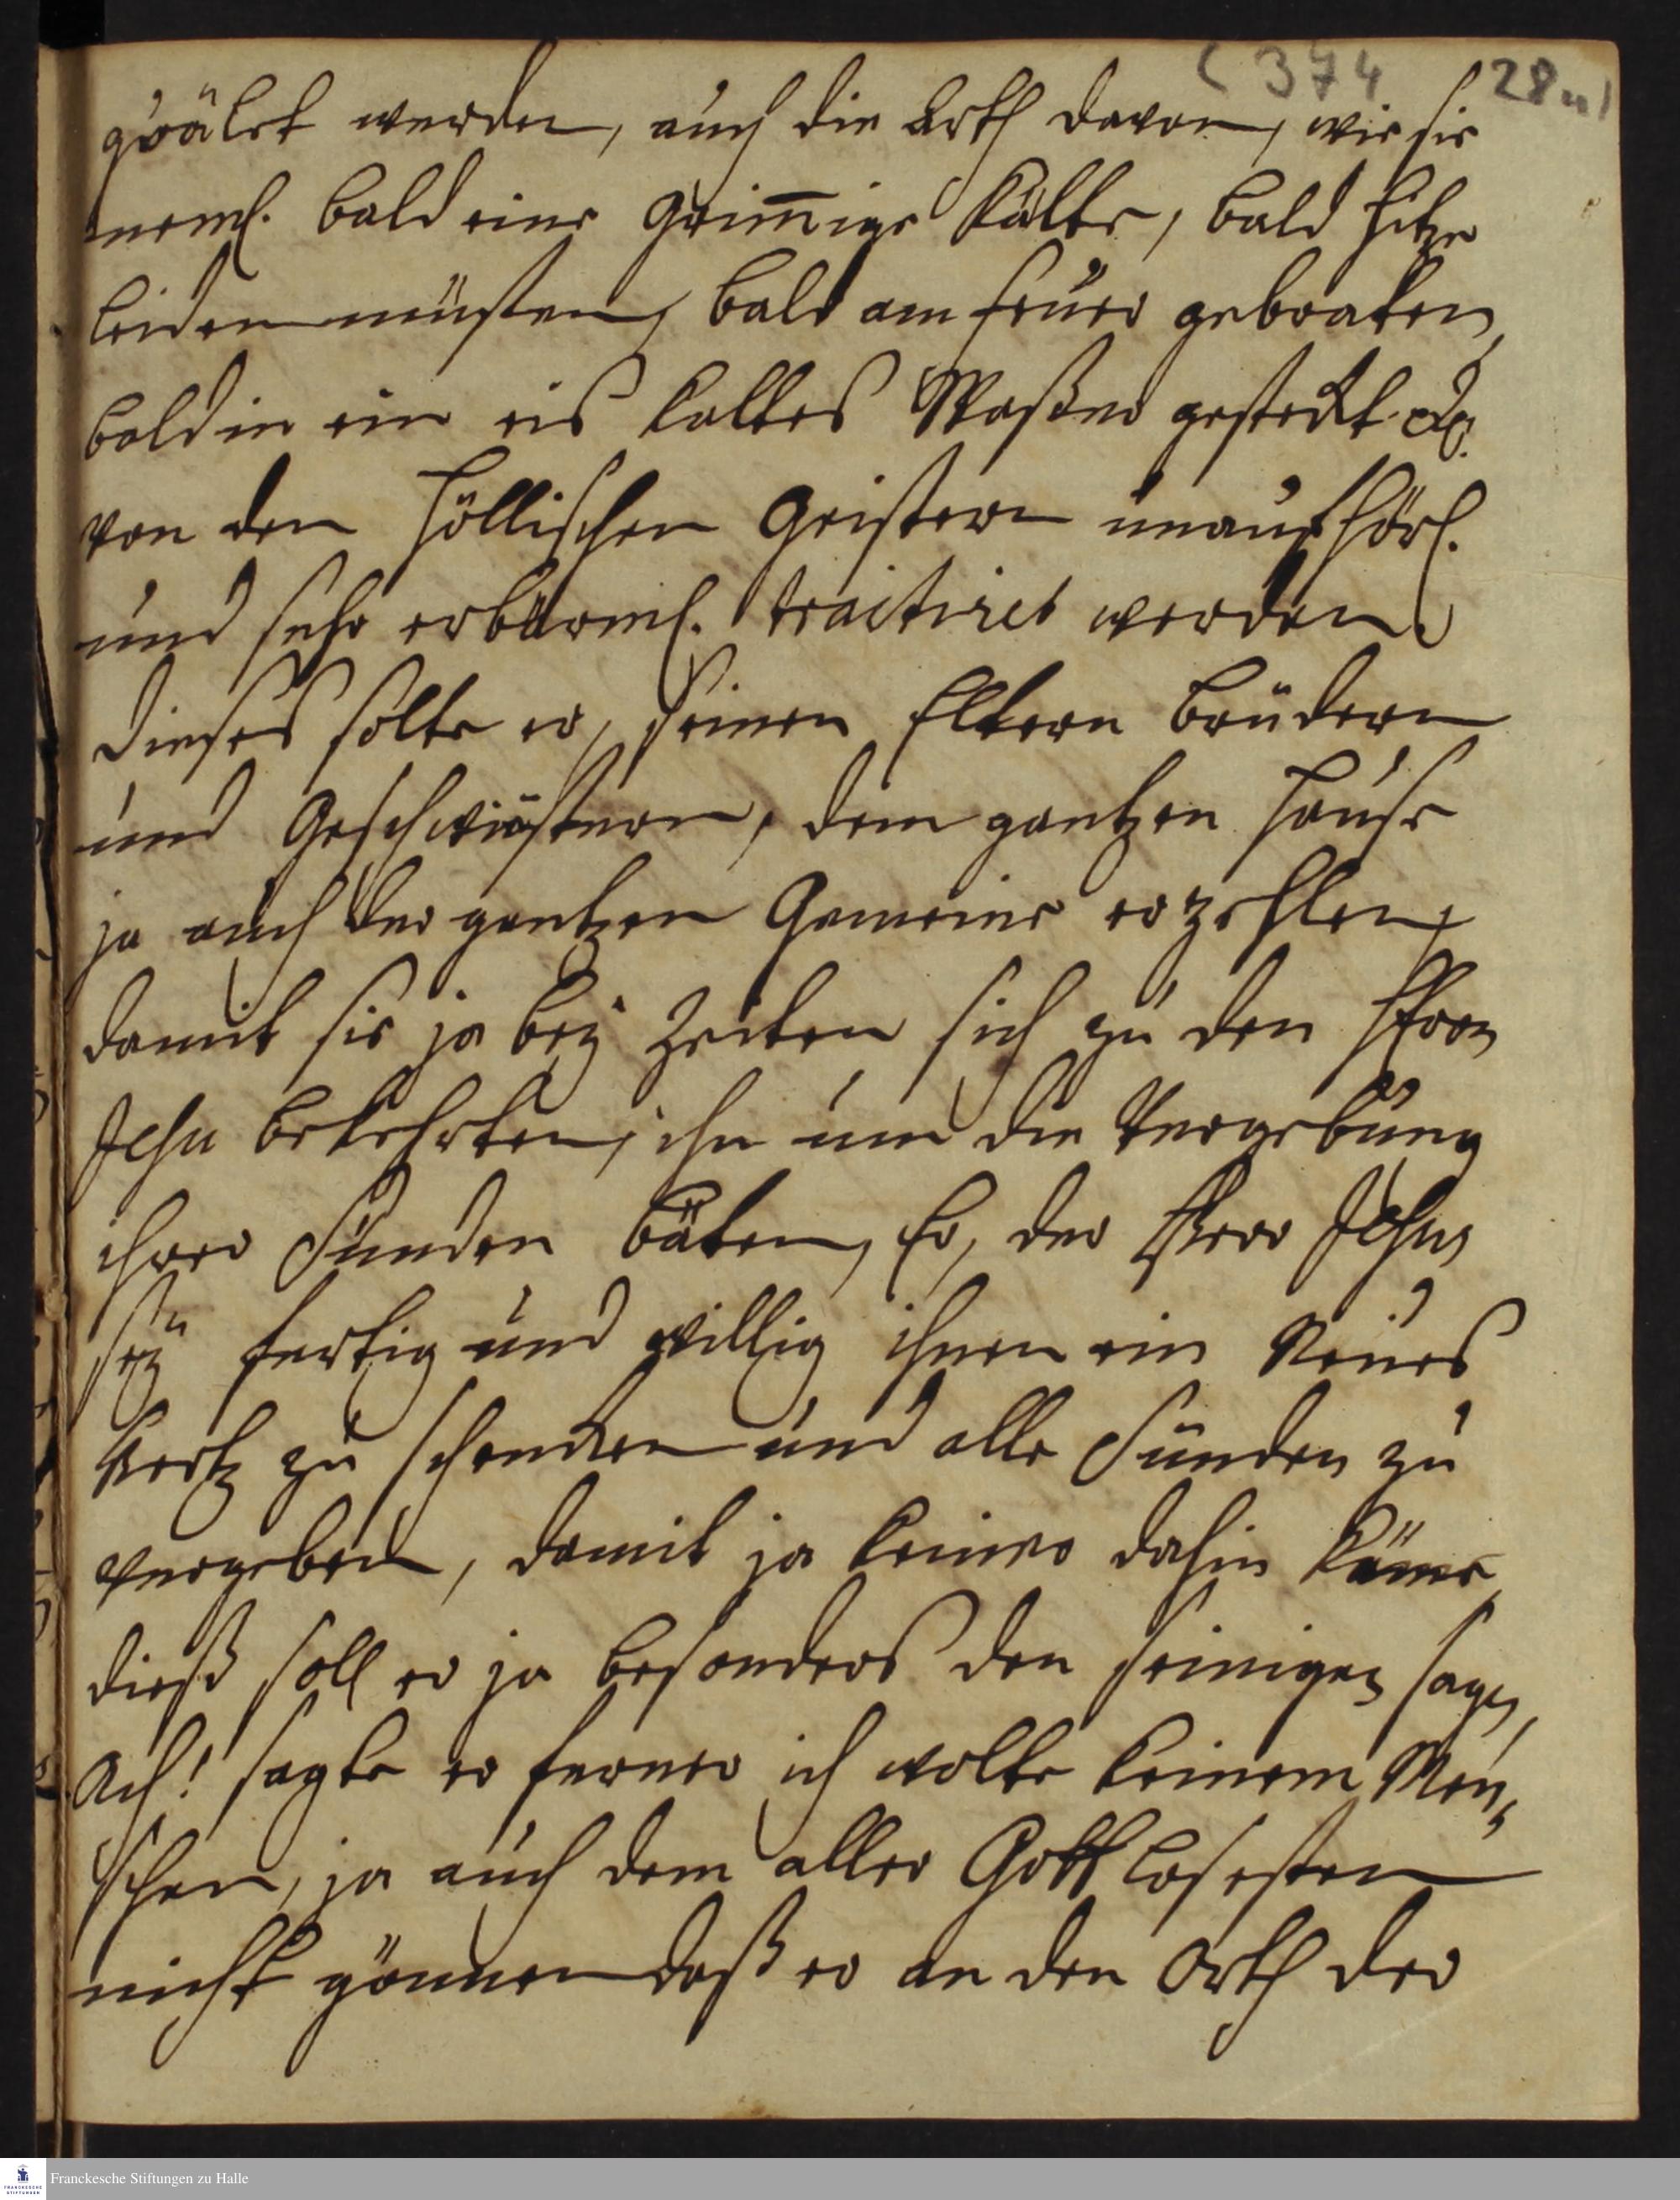 (374 28n)
qvälet werden, auch die Arth davon, wie sie
neml. bald eine grim̅ige Kälte, bald Hitze
leiden müsten, bald am Feuer gebraten,
bald in ein eis kaltes Waßer gesteckt &c.
von den Höllischen Geistern unaufhörl.
und sehr erbärml. tractiret werden.
Dieses solte er seinen Eltern Brüdern
und Geschwistern, dem gantzen Hause
ja auch der gantzen Gemeine erzehlen,
damit sie ja bey Zeiten sich zu den Herrn
Jesu bekehrten, ihn um die Vergebung
ihrer Sünden bäten, Er, der Herr Jesus
sey fertig und willig ihnen ein Neues
Hertz zu schencken und alle Sünden zu
vergeben, damit ja keiner dahin käme,
dieß soll er ja besonders den seinigen sagen,
Ach! sagte er ferner ich wolte keinem Men,
schen, ja auch dem aller Gottlosesten
nicht gönnen daß er an den Orth der
Franckesche Stiftungen zu Halle